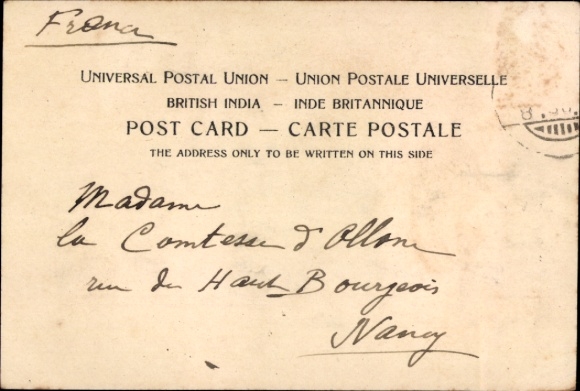 France
UNIVERSAL POSTAL UNION — UNION POSTALE UNIVERSELLE
BRITISH INDIA — INDE BRITANNIQUE
POST CARD — CARTE POSTALE
THE ADDRESS ONLY TO BE WRITTEN ON THIS SIDE
Madame
la Comtesse d'Ollone
rue du Haut Bourgeois
Nancy